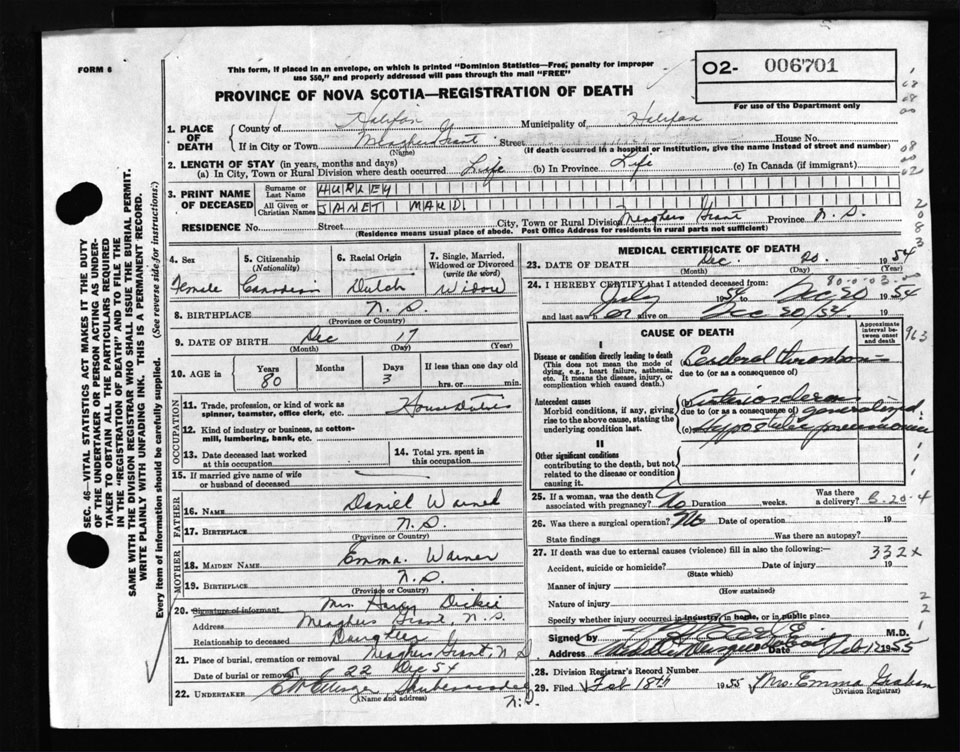 FORM 6
This form, if placed in an envelope, on which is printed "Dominion Statistics—Free, penalty for improper
use $50," and properly addressed will pass through the mail "FREE"
O2- 006701
For use of the Department only
PROVINCE OF NOVA SCOTIA—REGISTRATION OF DEATH
1. PLACE OF DEATH
County of Halifax Municipality of Halifax
If in City or Town Meaghers Grant Street House No.
(Name) (If death occurred in a hospital or institution, give the name instead of street and number)
2. LENGTH OF STAY (in years, months and days)
(a) In City, Town or Rural Division where death occurred Life (b) In Province Life (c) In Canada (if immigrant)
3. PRINT NAME OF DECEASED
Surname or Last Name HURLEY
All Given or Christian Names JANET MAUD.
RESIDENCE No. Street City, Town or Rural Division Meaghers Grant Province N.S.
(Residence means usual place of abode. Post Office Address for residents in rural parts not sufficient)
4. Sex
Female
5. Citizenship (Nationality)
Canadian
6. Racial Origin
Dutch
7. Single, Married, Widowed or Divorced (write the word)
Widow
8. BIRTHPLACE N.S.
(Province or Country)
9. DATE OF BIRTH Dec 17
(Month) (Day) (Year)
10. AGE in Years 80 Months Days 3 If less than one day old hrs. or min.
OCCUPATION
11. Trade, profession or kind of work as spinner, teamster, office clerk, etc. House Duties
12. Kind of industry or business, as cotton-mill, lumbering, bank, etc.
13. Date deceased last worked at this occupation
14. Total yrs. spent in this occupation
15. If married give name of wife or husband of deceased
FATHER
16. NAME Daniel
17. BIRTHPLACE N.S.
(Province or Country)
MOTHER
18. MAIDEN NAME Emma. Warner
19. BIRTHPLACE N.S.
(Province or Country)
20. Signature of informant Mrs. Harry Dickie
Address Meaghers Grant, N.S.
Relationship to deceased Daughter
21. Place of burial, cremation or removal Meaghers Grant, N S
Date of burial or removal 22 Dec 54
22. UNDERTAKER Shubenacadie
(Name and address) N.S.
MEDICAL CERTIFICATE OF DEATH
23. DATE OF DEATH Dec. 20. 1954
(Month) (Day) (Year)
24. I HEREBY CERTIFY that I attended deceased from:
July 1954 to Dec 20 1954
and last saw her alive on Dec 20/54
CAUSE OF DEATH
Approximate interval between onset and death
I
Disease or condition directly leading to death
(This does not mean the mode of dying, e.g., heart failure, asthenia, etc. It means the disease, injury, or complication which caused death.)
(a) Cerebral thrombosis
due to (or as a consequence of)
Antecedent causes
Morbid conditions, if any, giving rise to the above cause, stating the underlying condition last.
(b)
due to (or as a consequence of) generalized
(c) Hypostatic pneumonia
II
Other significant conditions
contributing to the death, but not related to the disease or condition causing it.
25. If a woman, was the death associated with pregnancy? No Duration weeks. Was there a delivery?
26. Was there a surgical operation? No Date of operation 19
State findings Was there an autopsy?
27. If death was due to external causes (violence) fill in also the following:—
Accident, suicide or homicide? Date of injury 19
(State which)
Manner of injury
(How sustained)
Nature of injury
Specify whether injury occurred in industry, in home, or in public place
Signed by M.D.
Address Date 1955
28. Division Registrar's Record Number
29. Filed Feb 18th 1955 Mrs. Emma Graham
(Division Registrar)
332x
SEC. 46—VITAL STATISTICS ACT MAKES IT THE DUTY
OF THE UNDERTAKER OR PERSON ACTING AS UNDER-
TAKER TO OBTAIN ALL THE PARTICULARS REQUIRED
IN THE "REGISTRATION OF DEATH" AND TO FILE THE
SAME WITH THE DIVISION REGISTRAR WHO SHALL ISSUE THE BURIAL PERMIT.
WRITE PLAINLY WITH UNFADING INK. THIS IS A PERMANENT RECORD.
Every item of information should be carefully supplied. (See reverse side for instructions.)